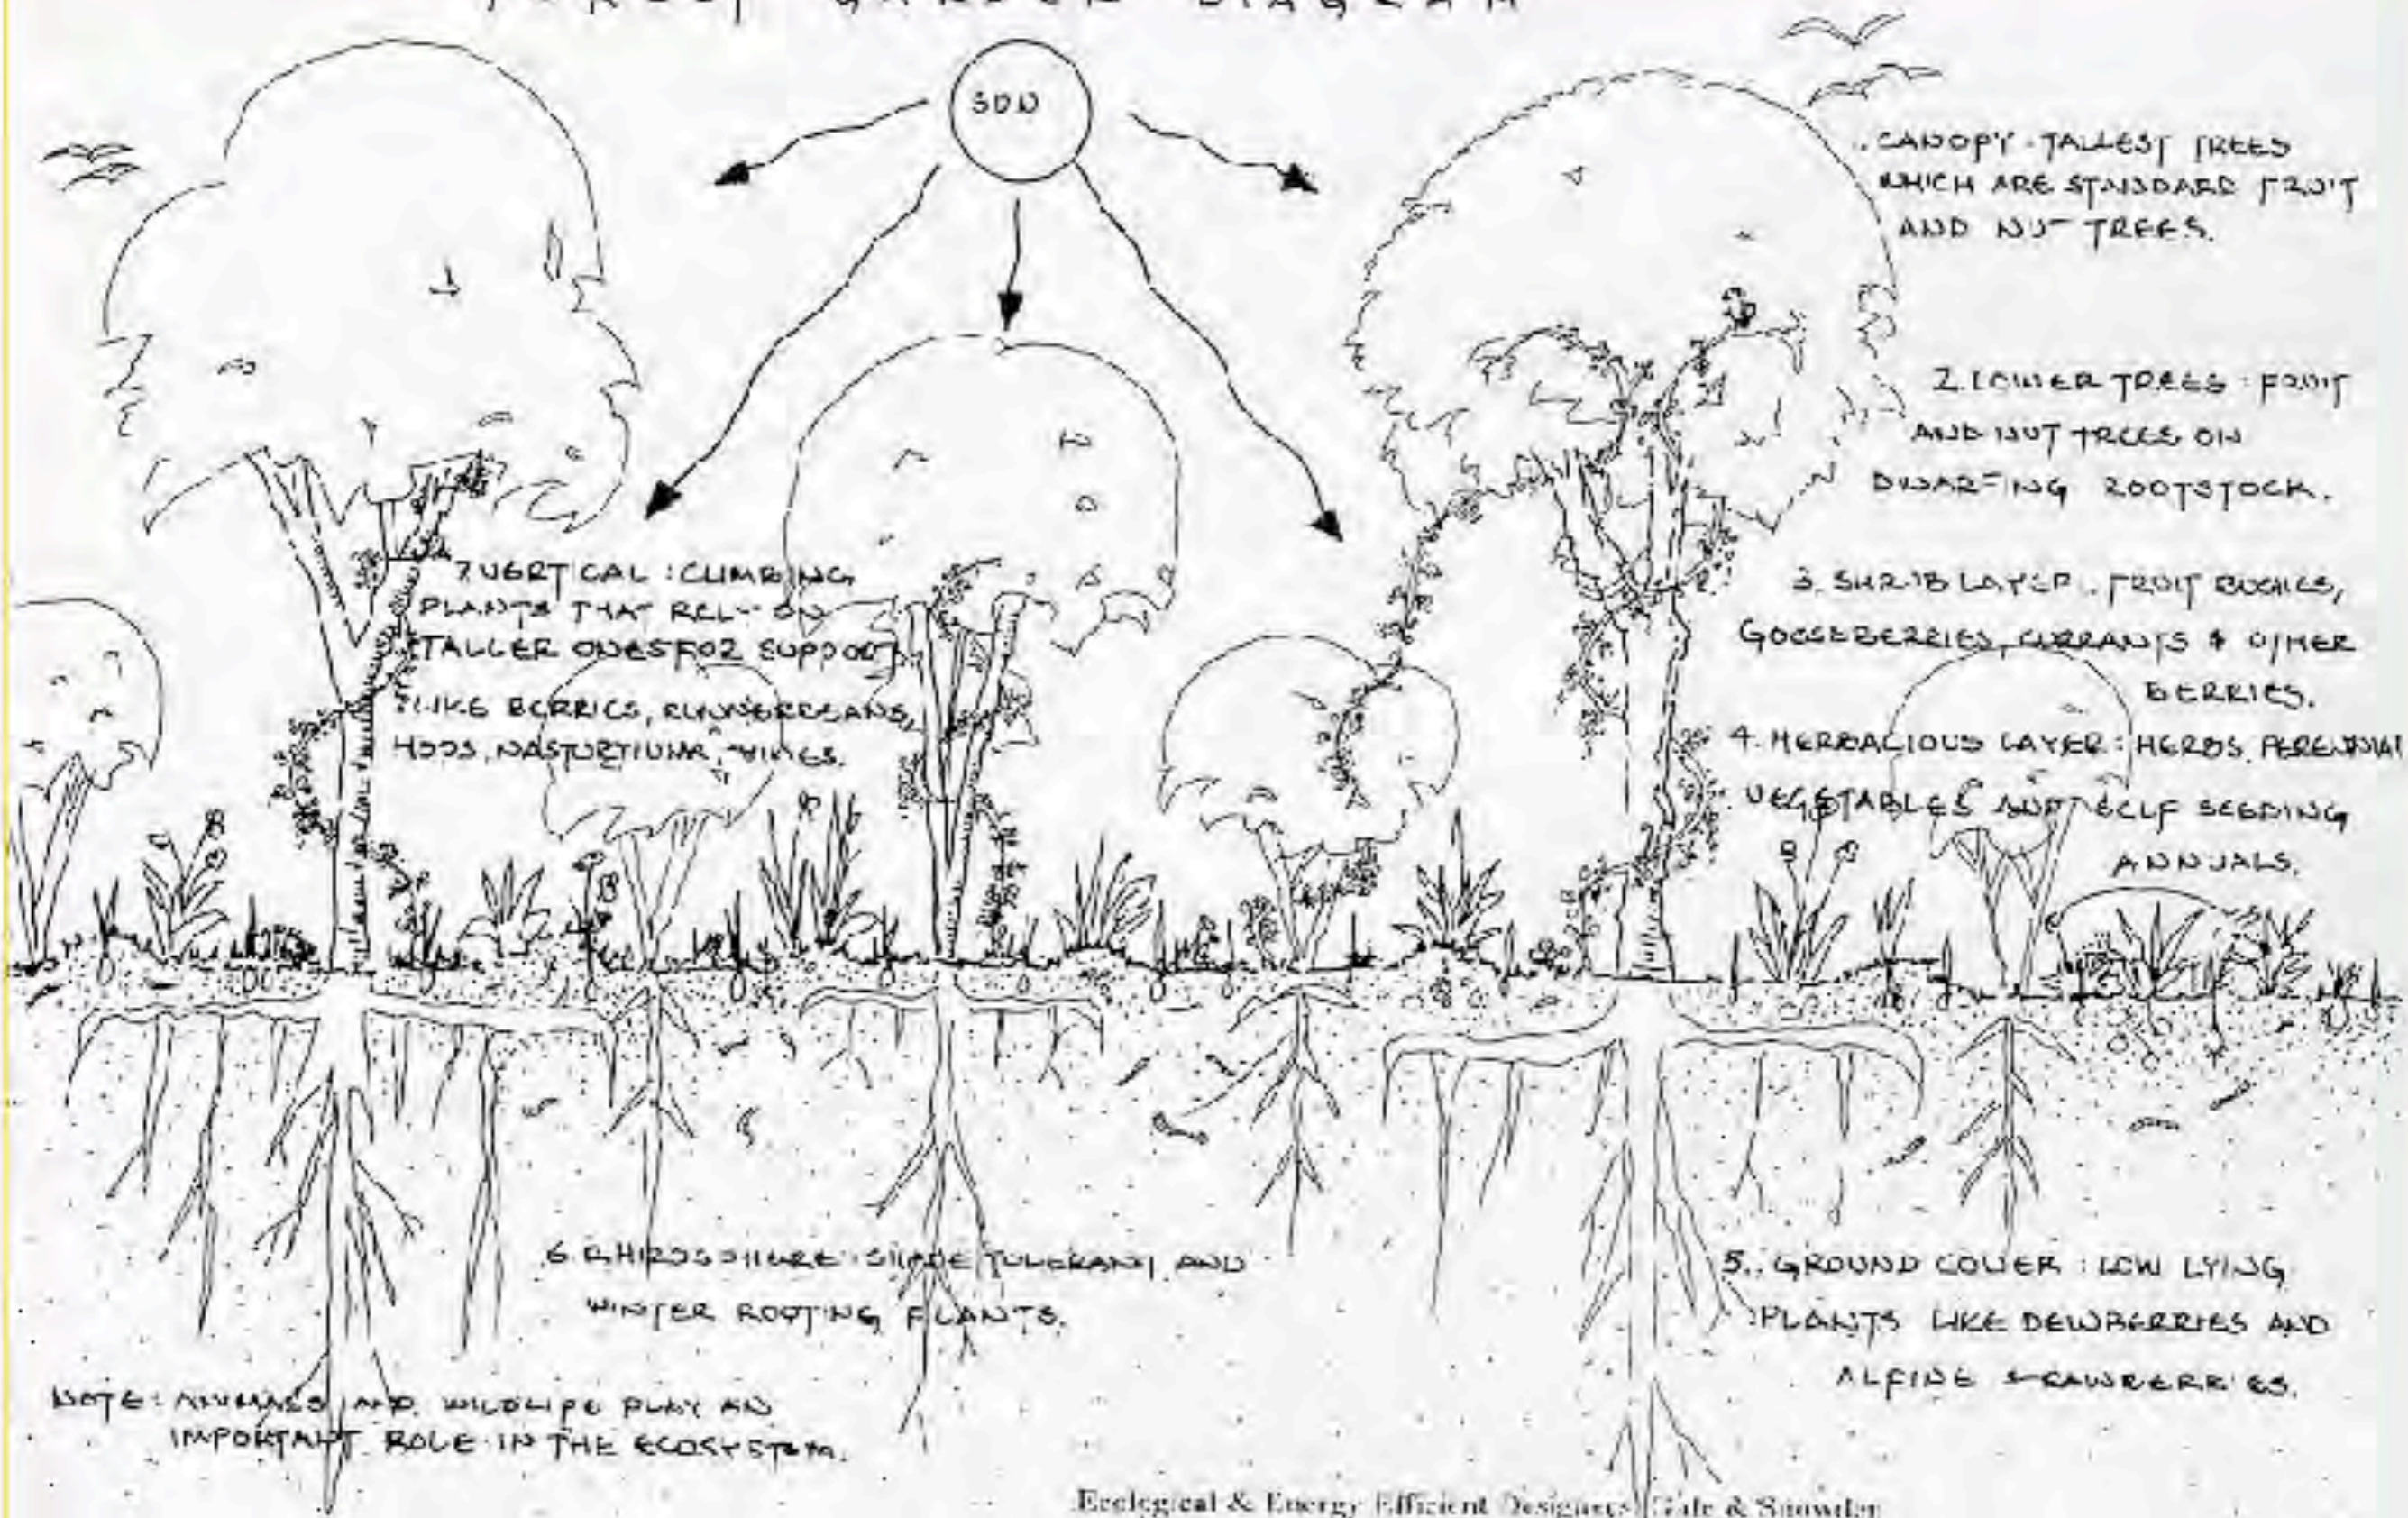 FOREST GARDEN DIAGRAM
SUN
. CANOPY . TALLEST TREES
WHICH ARE STANDARD FRUIT
AND NUT TREES.
2. LOWER TREES : FRUIT
AND NUT TREES ON
DWARFING ROOTSTOCK.
3. SHRUB LAYER . FRUIT BUSHES,
GOOSEBERRIES, CURRANTS & OTHER
BERRIES.
4. HERBACIOUS LAYER : HERBS, PERENNIAL
VEGETABLES AND SELF SEEDING
ANNUALS.
7. VERTICAL : CLIMBING
PLANTS THAT RELY ON
TALLER ONES FOR SUPPORT
LIKE BERRIES, RUNNERBEANS,
HOPS, NASTURTIUM, VINES.
6. SHADE TOLERANT AND
WINTER ROOTING PLANTS.
5. GROUND COVER : LOW LYING
PLANTS LIKE DEWBERRIES AND
ALPINE STRAWBERRIES.
NOTE : ANIMALS AND WILDLIFE PLAY AN
IMPORTANT ROLE IN THE ECOSYSTEM.
Ecological & Energy Efficient Designers Gale & Snowden